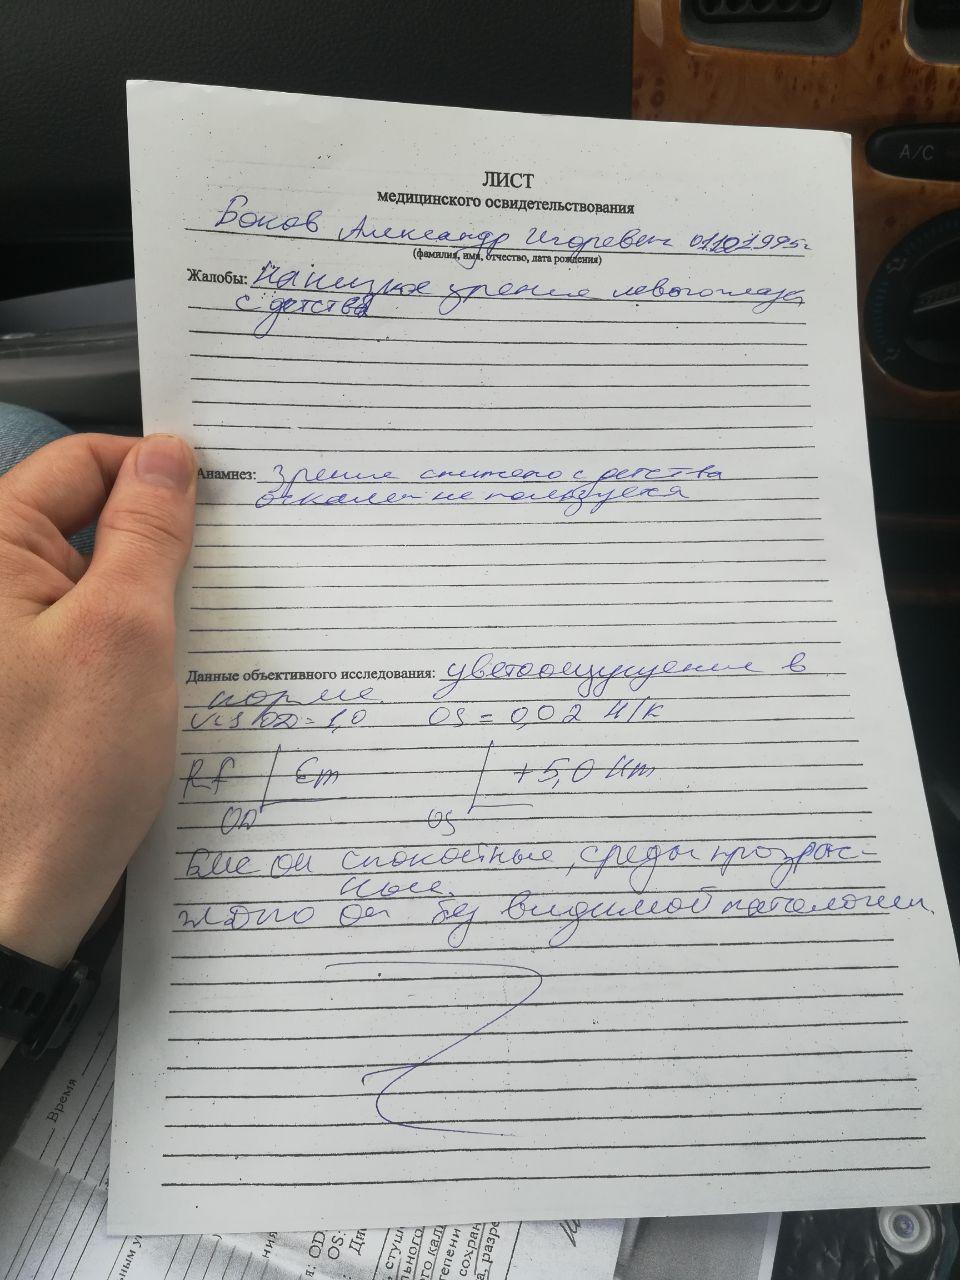 A/C
ЛИСТ
медицинского освидетельствования
Боков Александр Игоревич 01.10.1995г
(фамилия, имя, отчество, дата рождения)
Жалобы: На низкое зрение левого глаза
с детства
Анамнез: Зрение снижено с детства
очками не пользуется
Данные объективного исследования: цветоощущение в
норме.
Vis OD = 1,0 OS = 0,02 н/к
Rf Em +5,0
OD OS
ои спокойные, среды прозрач-
ные.
ои без видимой патологии.
Время